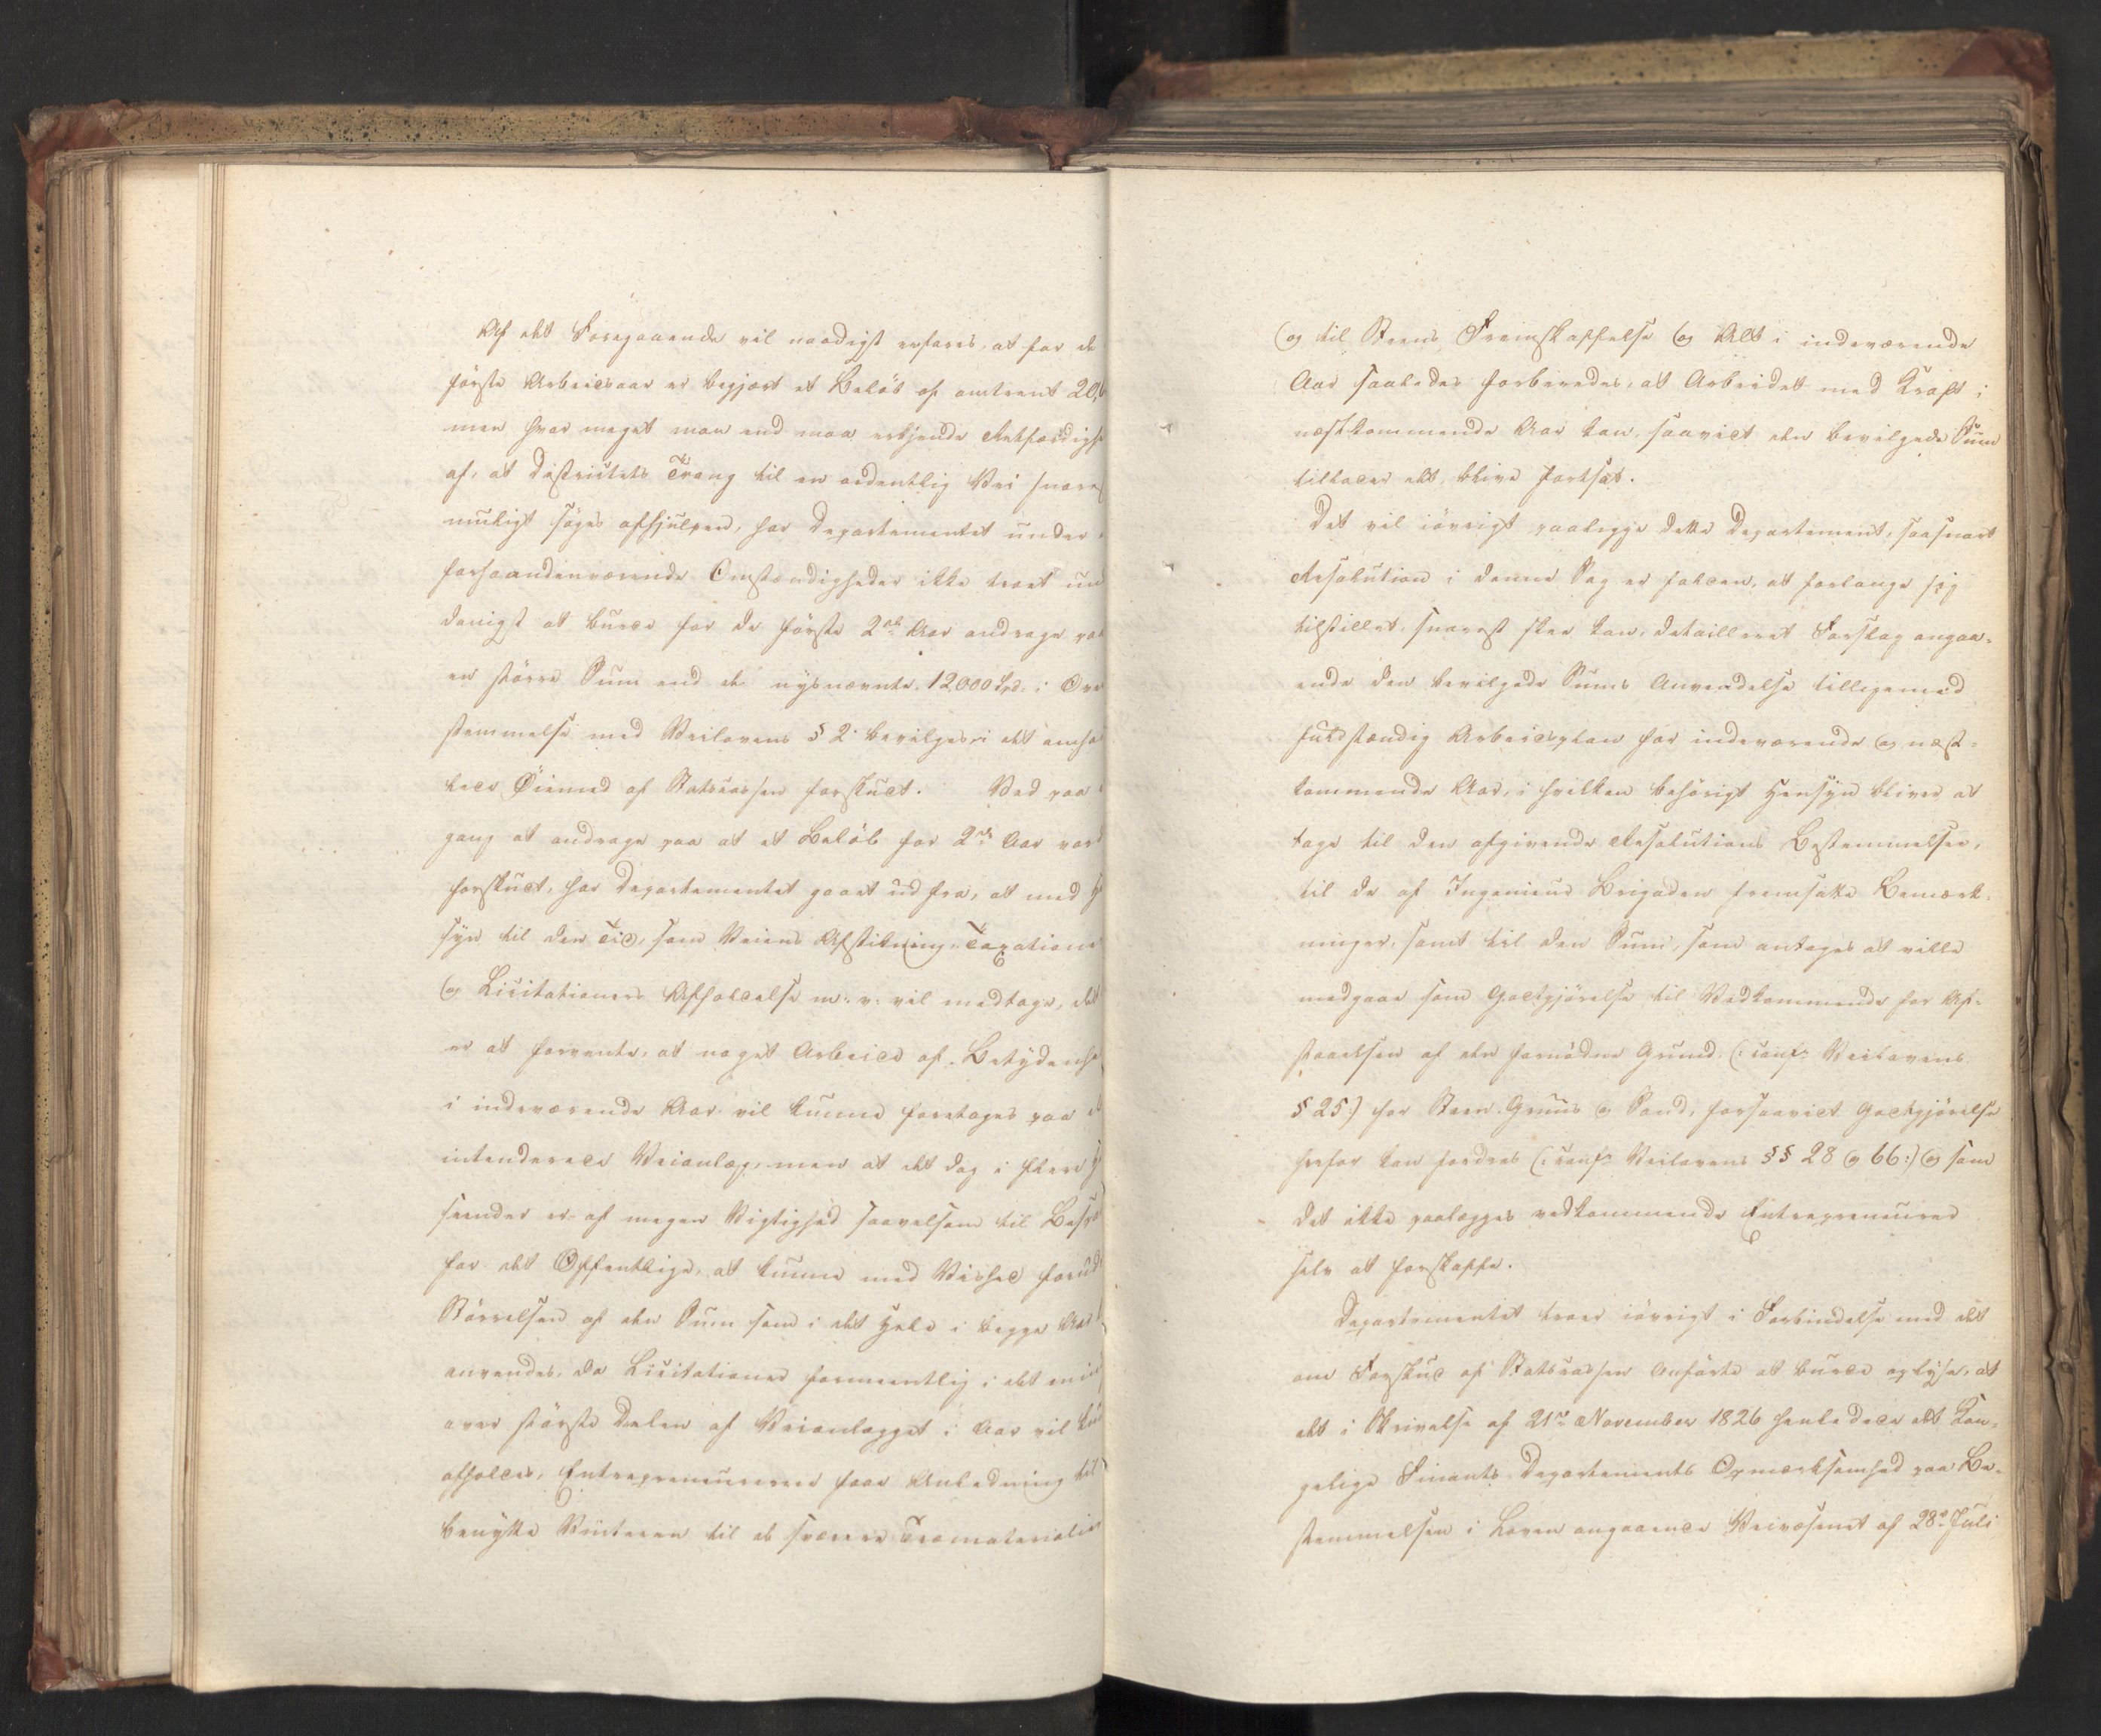 Af det Foregaaende vil naadigst erfares, at for de
første Arbeidsaar er begjært et Beløb af omtrent 20,
men hvor meget man end maa erkjende Retfærdighe
af, at Districtets Trang til en ordentlig Vei snares
muligt søges afhjulpen, har Departementet under
forhaandenværende Omstændigheder ikke troet un
danigst at burde for de første 2de Aar andrage paa
en større Sum end de nysnævnte 12000 Spd. i Ove
stemmelse med Veilovens § 2 bevilges i det omha
lede Øiemed af Statscassen forskudt. Ved paa
gang at andrage paa at et Beløb for 2de Aar vor
forskudt, har Departementet gaaet ud fra, at med H
syn til den Tid, som Veiens Afstikning, Taxations
og Licitationers Afholdelse m: v: vil medtage, det
er at forvente, at noget Arbeide af Betydenh
i indeværende Aar vil kunne foretages paa d
intenderede Veianlæg, men at det dog i flere H
seender er af megen Vigtighed saavelsom til Bespa
for det Offentlige, at kunne med Vished forud
Størrelsen af den Sum som i det Hele i begge Aar
anvendes, da Licitationer formeentlig i det mi
over største Delen af Veianlægget i Aar vil kun
afholdes, Entrepreneurerne faae Anledning til
benytte Vinteren til de sværere Træmaterialie
og til Steens Fremskaffelse og Alt i indeværende
Aar saaledes forberedes, at Arbeidet med Kraft i
næstkommende Aar kan, saavidt den bevilgede Sum
tillader det, blive fortsat.
Det vil iøvrigt paaligge dette Departement, saasnart
Resolution i denne Sag er falden, at forlange sig
tilstillet, snarest skee kan, detailleret Forslag angaa-
ende den bevilgede Sums Anvendelse tilligemed
fuldstændig Arbeidsplan for indeværende og næst-
kommende Aar, i hvilken behørigt Hensyn bliver at
tage til den afgivende Resolutions Bestemmelser,
til de af Ingenieur Brigaden fremsatte Bemærk-
ninger, samt til den Sum, som antages at ville
medgaae som Godtgjørelse til Vedkommende for Af-
staaelsen af den fornødne Grund (: conf: Veilovens
§ 25:) for Steen, Gruus og Sand, forsaavidt Godtgjørelse
herfor kan fordres (: conf: Veilovens §§ 28 og 66:) og som
det ikke paalægges vedkommende Entrepreneurer
selv at forskaffe.
Departementet troer iøvrigt i Forbindelse med det
om Forskud af Statscassen Anførte at burde oplyse, at
det i Skrivelse af 21de November 1826 henledede det Kon-
gelige Finants-Departements Opmærksomhed paa Be-
stemmelsen i Loven angaaende Veivæsenet af 28de Juli